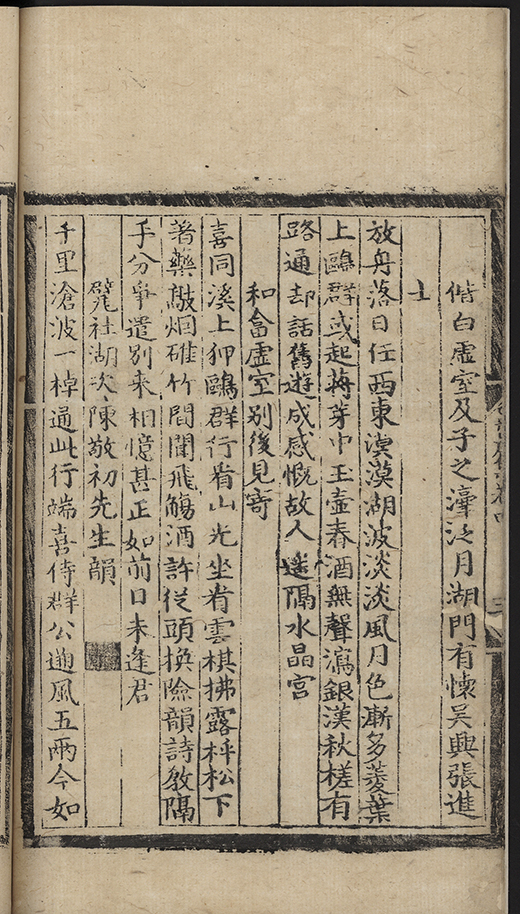 偕白虛室及子之澤泛月湖門有懷吳興張進
士
放舟落日任西東漠漠湖波淡淡風月色漸多菱葉
上鷗群或起蒋芽中玉壺春酒無聲瀉銀漢秋槎有
路通却話舊遊成感慨故人遙隔水晶宮
和畣虛室别後見寄
喜同溪上狎鷗群行看山光坐看雲棋拂露枰松下
著藥敲烟碓竹間聞飛觴酒許從頭換險韻詩教隔
手分爭遣别來相憶甚正如前日未逢君
甓社湖次陳敬初先生韻
千里滄波一棹通此行端喜侍群公遡風五兩今如